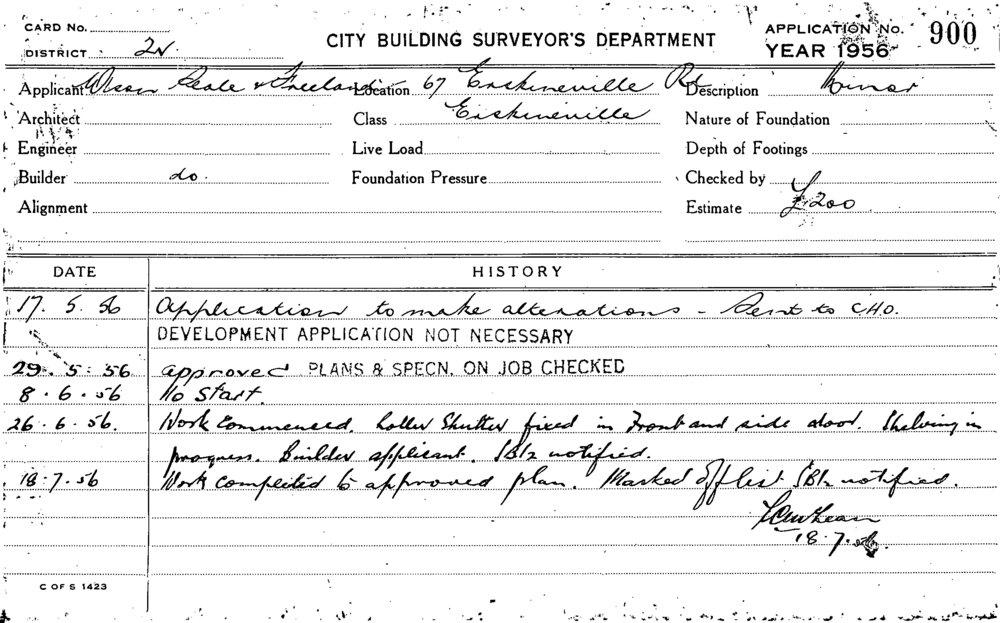 CARD No.
DISTRICT 2N
CITY BUILDING SURVEYOR'S DEPARTMENT
APPLICATION No. 900
YEAR 1956
Applicant Olsson Seale & Freeland Location 67 Erskineville Rd Description Minor
Architect Class Erskineville Nature of Foundation
Engineer Live Load Depth of Footings
Builder do. Foundation Pressure Checked by
Alignment Estimate £200
DATE HISTORY
17. 5. 56 Application to make alterations - Sent to C.H.O.
DEVELOPMENT APPLICATION NOT NECESSARY
29. 5. 56 approved PLANS & SPECN. ON JOB CHECKED
8. 6. 56 No Start.
26. 6. 56. Work commenced. Roller Shutter fixed in Front and side door. Shelving in
progress. Builder applicant. notified.
18. 7. 56 Work completed to approved plan. Marked off list notified.
18. 7. 56.
C OF S 1423